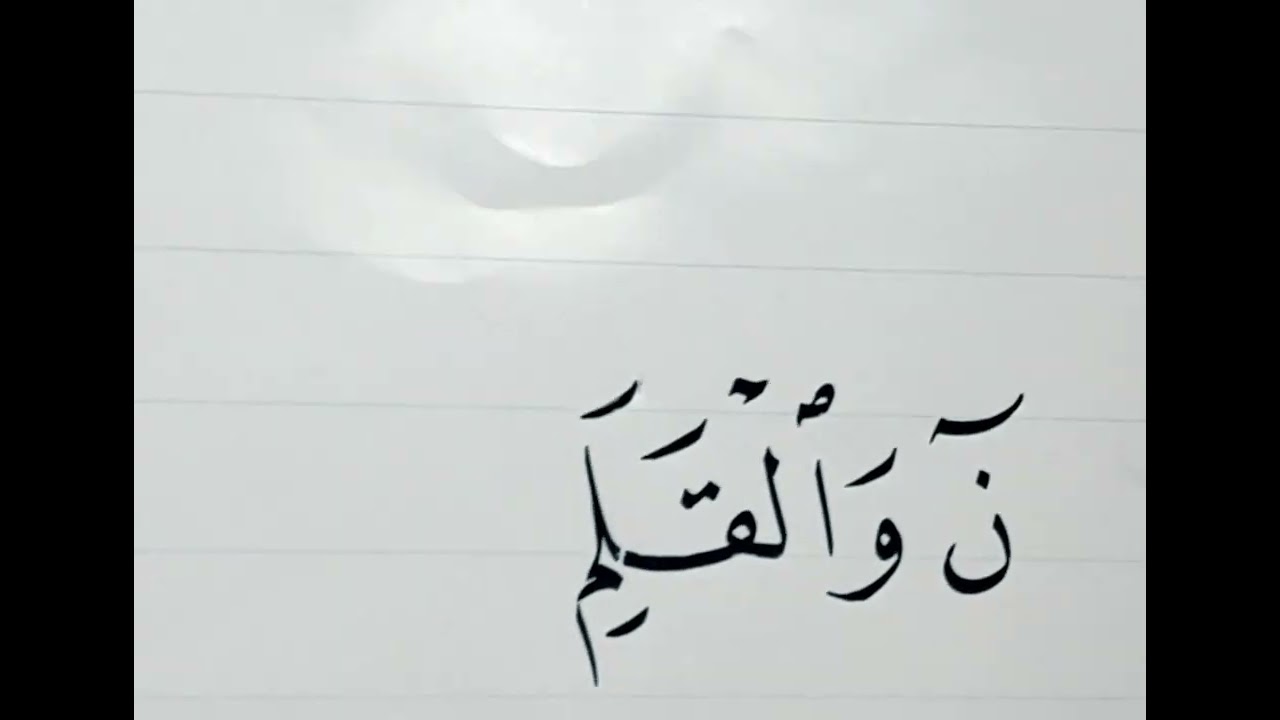 نٓ وَٱلْقَلَمِ